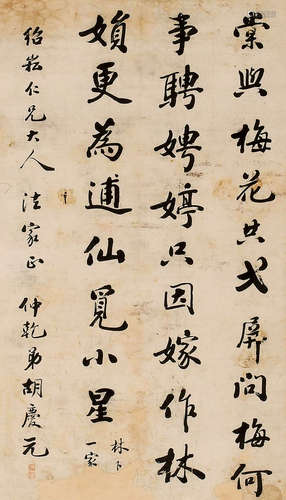 棠與梅花共弌屏問梅何
事聘娉婷只因嫁作林
更為逋仙覓小星
林下
一家
紹崧仁兄大人 法家正 仲乾弟胡慶元